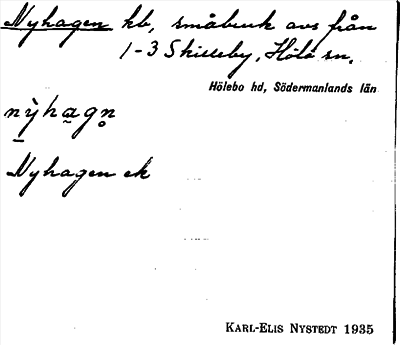 Nyhagen hb, småbruk avs från
1-3 Skilleby, Hölö sn.
Hölebo hd, Södermanlands län
nỳha̰gn̥
Nyhagen ek
KARL-ELIS NYSTEDT 1935